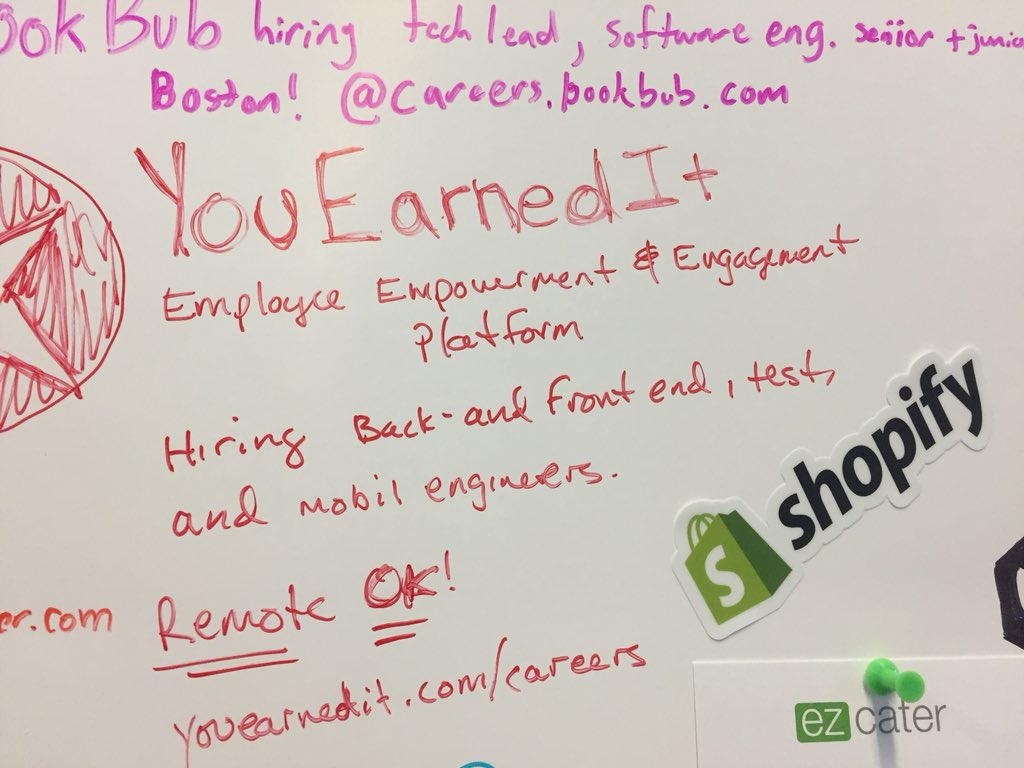 ook Bub hiring tech lead, software eng. senior + junio
Boston! @careers.bookbub.com
YouEarnedIt
Employee Empowerment & Engagement
Platform
Hiring Back-and Front end, test,
and mobil engineers.
Remote OK!
er.com
youearnedit.com/careers
shopify
ez cater